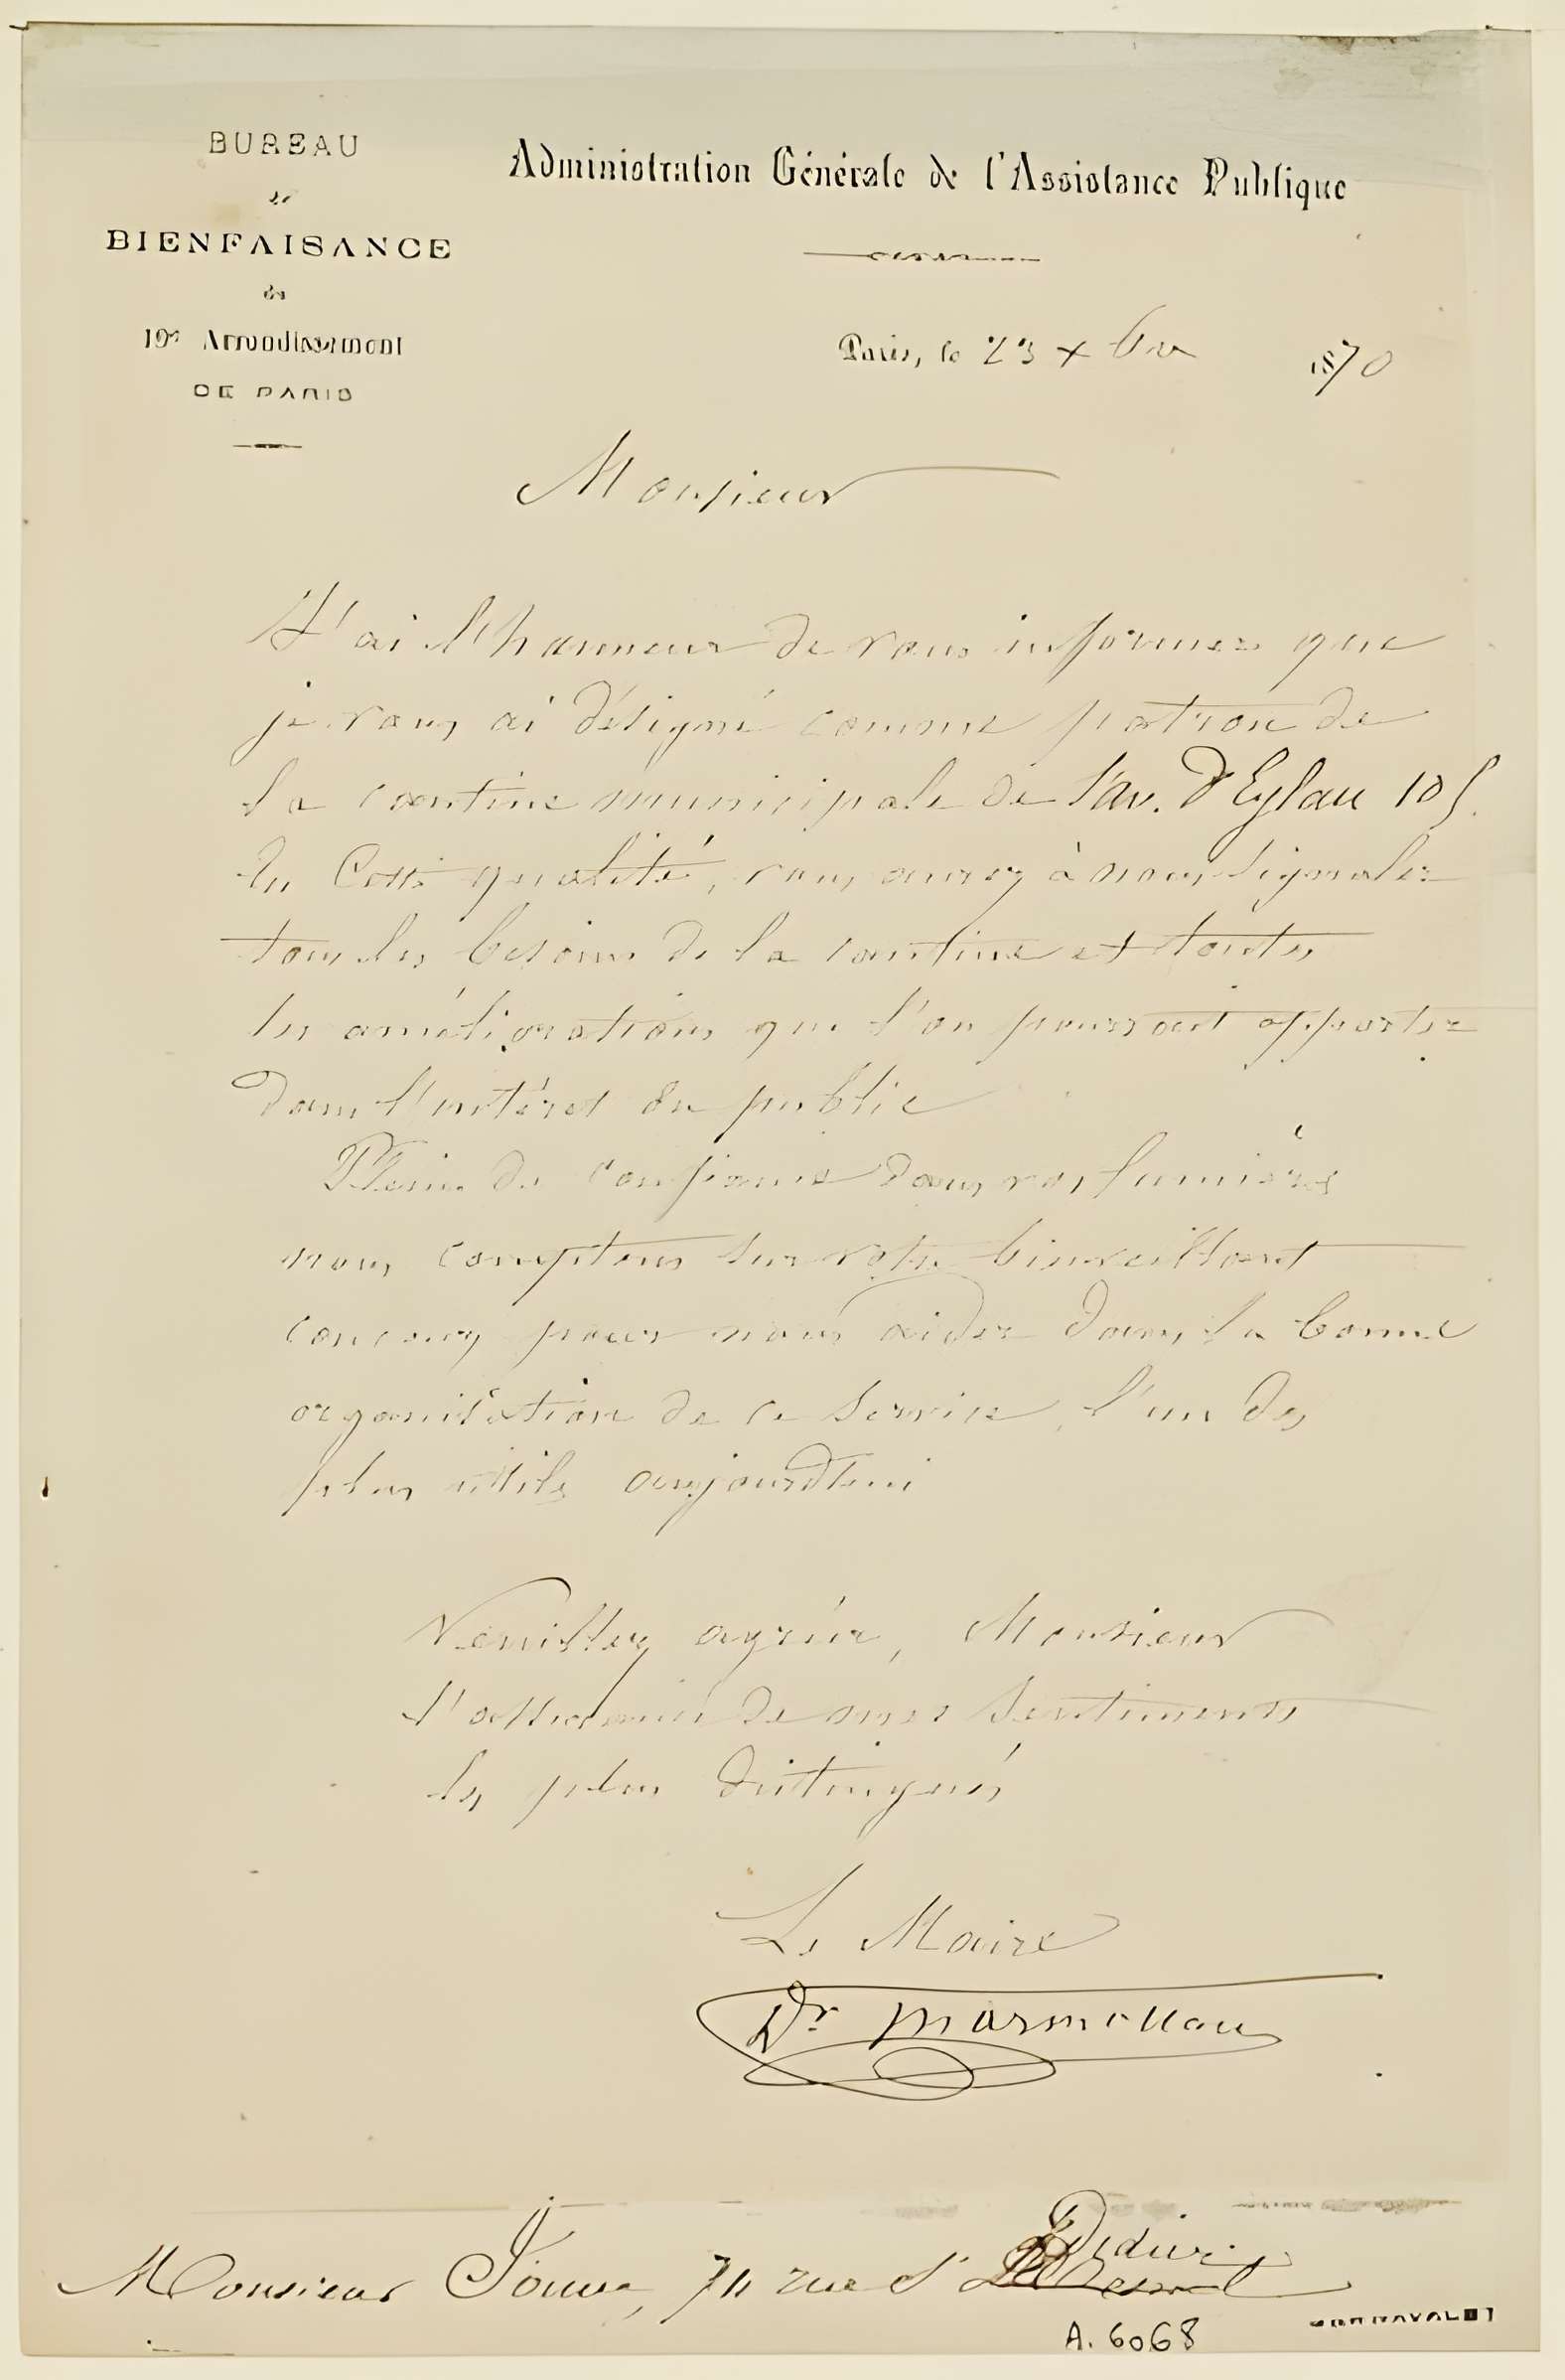 BUREAU
de
BIENFAISANCE
du
Arrondissement
DE PARIS
Administration Générale de l'Assistance Publique
Paris, le 23 Xbre 1870
Monsieur
J'ai l'honneur de vous informer que
je vous ai désigné comme patron de
la cantine municipale de l'av. d'Eylau 105.
En cette qualité, vous aurez à nous signaler
tous les besoins de la cantine et toutes
les améliorations que l'on pourrait apporter
dans l'intérêt du public
Plein de confiance dans vos lumières
nous comptons sur votre bienveillant
concours pour nous aider dans la bonne
organisation de ce service, l'un des
plus utiles aujourd'hui
Veuillez agréer, Monsieur
l'assurance de mes sentiments
les plus distingués
Le Maire
Dr Marmottan
Monsieur rue St Didier
A. 6068